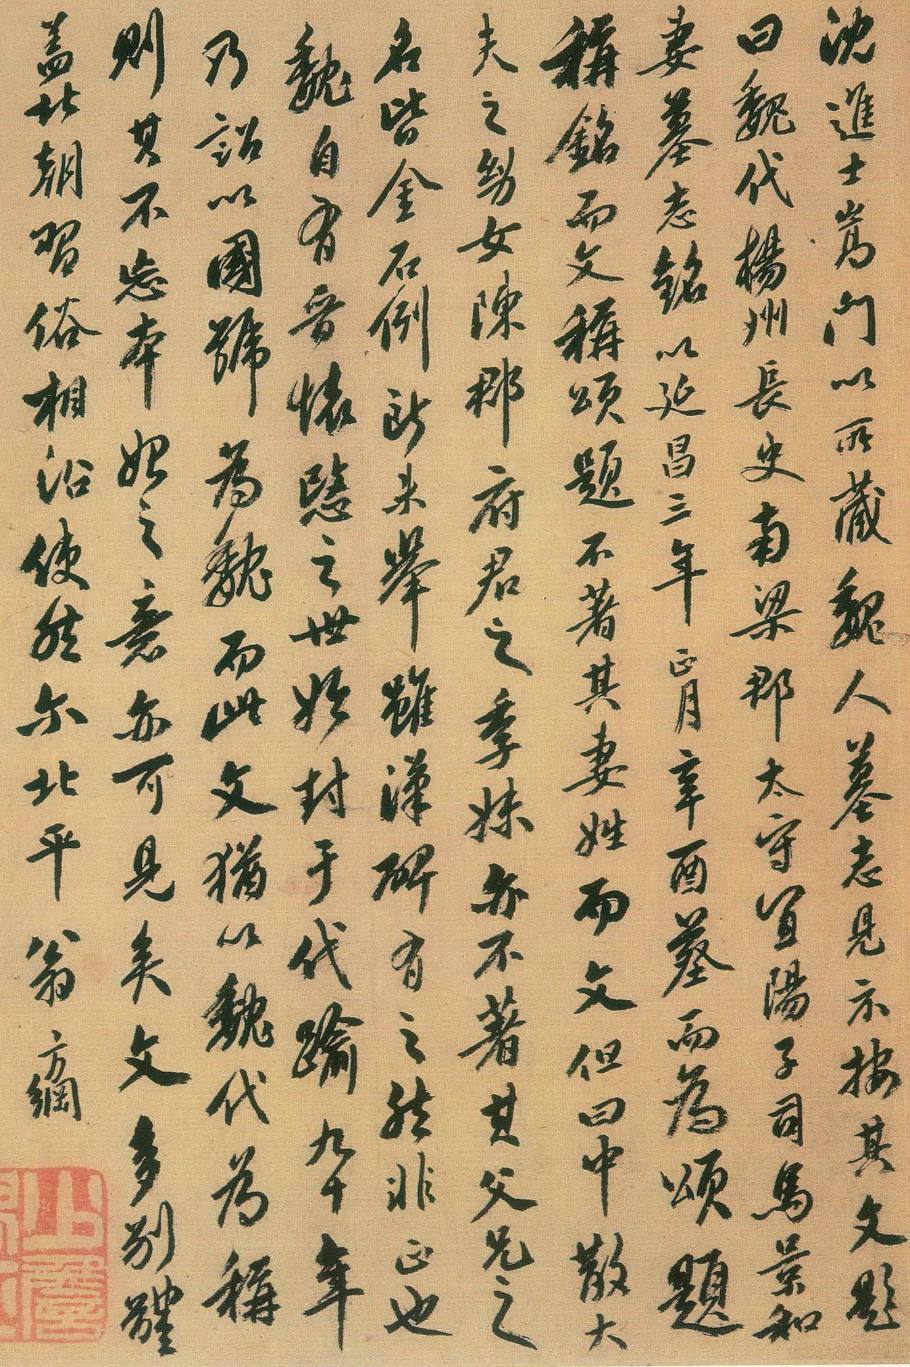 沈進士嵩門以所藏魏人墓志見示按其文題
曰魏代楊州長史南梁郡太守宜陽子司馬景和
妻墓志銘以延昌三年正月辛酉葬而為頌題
稱銘而文稱頌題不著其妻姓而文但曰中散大
夫之幼女陳郡府君之季妹亦不著其父兄之
名皆金石例所未舉雖漢碑有之然非正也
魏自有晉懷愍之世始封于代踰九十年
乃詔以國號為魏而此文猶以魏代為稱
則其不忘本始之意亦可見矣文多別體
盖北朝習俗相沿使然尔北平翁方綱